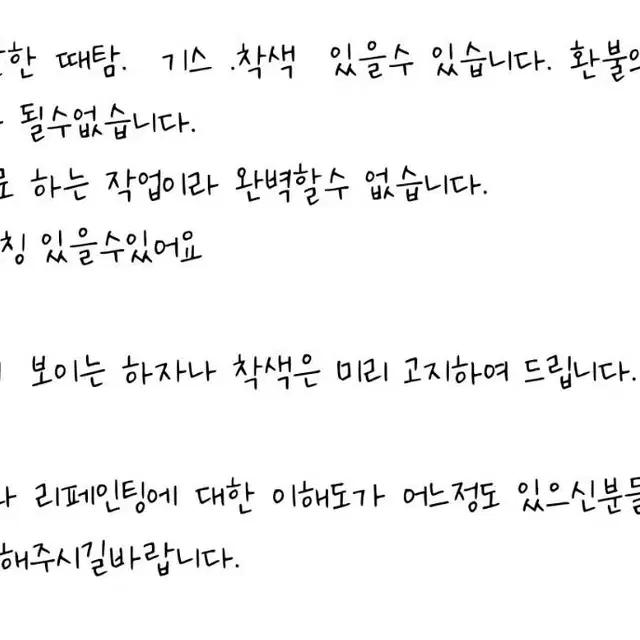 한 때탐. 기스 .착색 있을수 있습니다. 환불의
될수없습니다.
로 하는 작업이라 완벽할수 없습니다.
칭 있을수있어요
보이는 하자나 착색은 미리 고지하여 드립니다.
나 리페인팅에 대한 이해도가 어느정도 있으신분들
해주시길바랍니다.